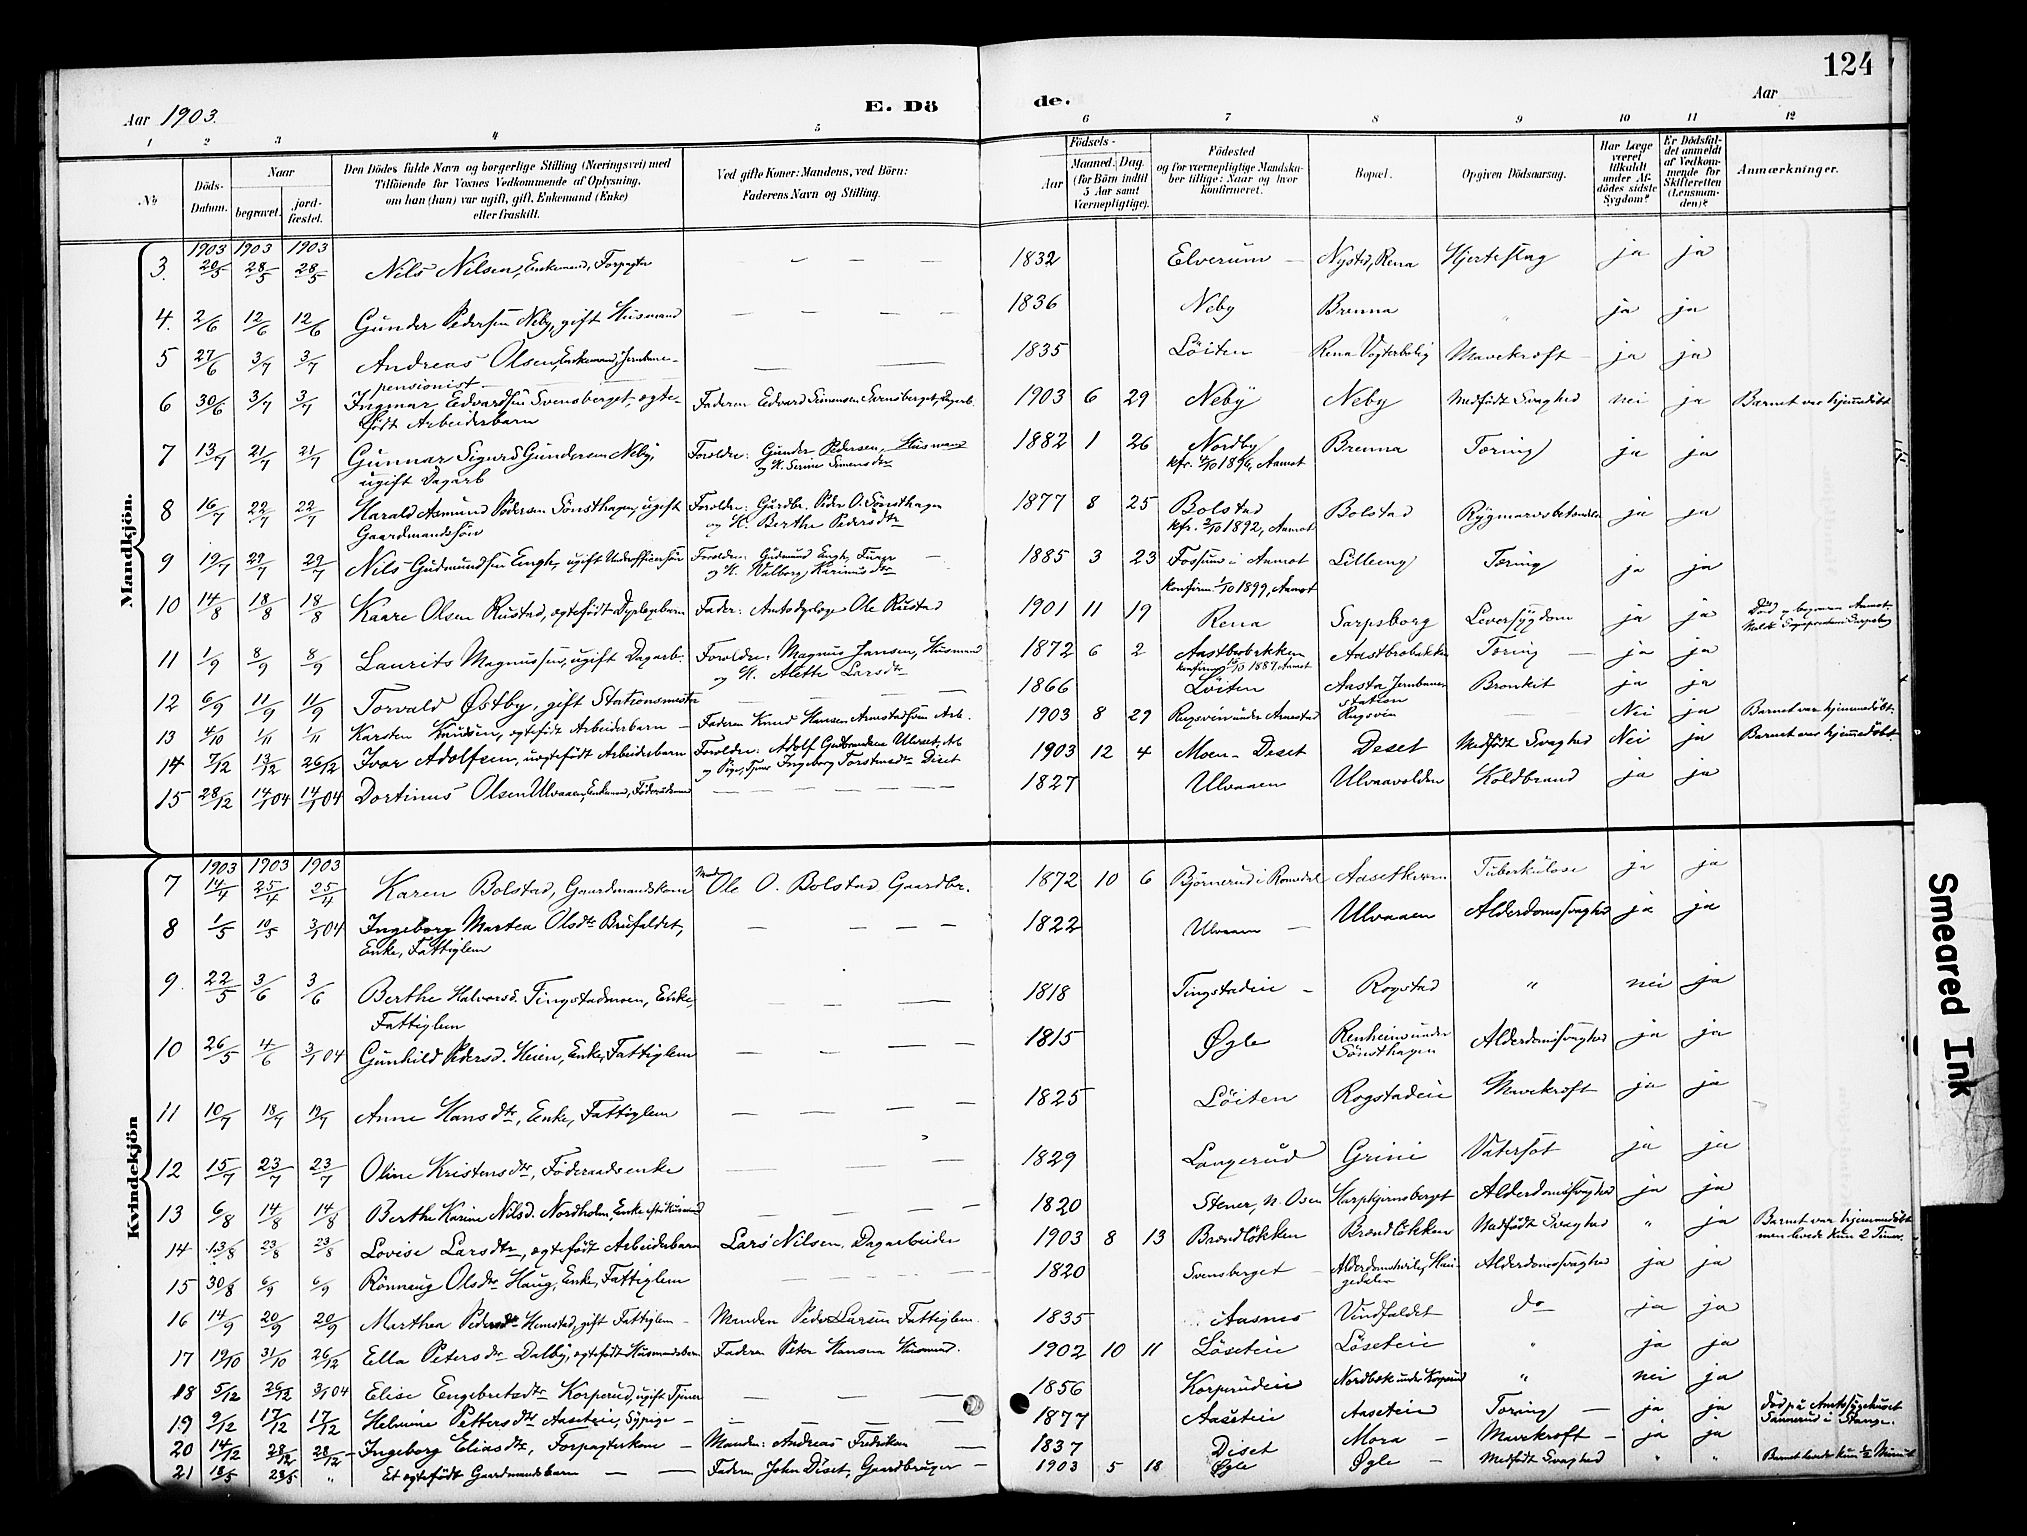 124
Aar 1903.
E. Dö
de.
Aar
1 2 3 4 5 6 7 8 9 10 11 12
№
Döds-Datum.
Naar
begravet.
jordfæstet.
Den Dödes fulde Navn og borgerlige Stilling (Næringsvei) med
Tilföiende for Voxnes Vedkommende af Oplysning,
om han (hun) var ugift, gift, Enkemand (Enke)
eller fraskilt.
Ved gifte Koner: Mandens, ved Börn:
Faderens Navn og Stilling.
Födsels-
Aar
Maaned. Dag.
(for Börn indtil
5 Aar samt
Værnepligtige).
Födested
og for værnepligtige Mandska-
ber tillige: Naar og hvor
konfirmeret.
Bopæl.
Opgiven Dödsaarsag.
Har Læge
været
tilkaldt
under Af-
dödes sidste
Sygdom?
Er Dödsfal-
det anmeldt
af Vedkom-
mende for
Skifteretten
(Lensman-
den)?
Anmærkninger.
Mandkjön.
1903 1903 1903
3. 20/5 28/5 28/5 Nils Nilsen, Enkemand, Forpagter — 1832 Elverum Nysted, Rena Hjerteslag ja ja
4. 2/6 12/6 12/6 Gunder Pedersen Neby, gift Husmand — 1836 Neby Brenna " ja ja
5 27/6 3/7 3/7 Andreas Olsen, Enkemand, Jernbane-
pensionist — 1835 Löiten Rena Vogterbolig Mavekræft ja ja
6 30/6 3/7 3/7 Ingmar Edvardsen Svensberget, ægte-
födt Arbeiderbarn Faderen Edvard Simensen Svensberget, Dagarb. 1903 6 29 Neby Neby Medfödt Svaghed nei ja Barnet var hjemmedöbt
7 13/7 21/7 21/7 Gunnar Sigurd Gundersen Neby,
ugift Dagarb Foreldre: Gunder Pedersen, Husmand
og H. Serine Simensdtr 1882 1 26 Nordby
kfr. 4/10 1896, Aamot Brenna Tæring ja ja
8 16/7 22/7 22/7 Harald Asmund Pedersen Sönsthagen, ugift
Gaardmandssön Foreldre: Gardbr. Peder O. Sönsthagen
og H. Berthe Pedersdtr 1877 8 25 Bolstad
kfr. 2/10 1892, Aamot Bolstad ja ja
9 19/7 29/7 29/7 Nils Gudmundsen Engh, ugift Underofficersön Foreldre: Gudmund Engh,
og H. Walborg Karinusdtr 1885 3 23 Fossum i Aamot
konfirm. 1/10 1899, Aamot Lilleeng Tæring ja ja
10 14/8 18/8 18/8 Kaare Olsen Rustad, ægtefödt Dyrlægebarn Fader: Amtsdyrlæge Ole Rustad 1901 11 19 Rena Sarpsborg Leversygdom ja ja
11 1/9 8/9 8/9 Laurits Magnussen, ugift Dagarb. Foreldre: Magnus Jansen, Husmand
og H. Alette Larsdtr 1872 6 2 Aastbrobækken
1887 Aamot Aastbrobækken Tæring ja ja
12 6/9 11/9 11/9 Torvald Østby, gift Stationsmester — 1866 Löiten Aasta Jernbane-
station Bronkit ja ja
13 4/10 1/11 1/11 Karsten Knudsen, ægtefödt Arbeiderbarn Faderen Knud Hansen Arb. 1903 8 29 Rugsvéen under Arnestad Rugsvéen — Nei ja Barnet var hjemmedöbt.
14 7/12 13/12 26/12 Ivar Adolfsen, uægtefödt Arbeiderbarn Foreldre: Adolf Gudbrandsen Ulvset, Arb
og Pige, Tjener Ingeborg Torstensdtr Diset 1903 12 4 Moen - Deset Deset Medfödt Svaghed Nei ja Barnet var hjemmedöbt.
15 28/12 14/1 04 14/1 04 Dortinus Olsen Ulvaaen, Enkemand, Föderaadsmand — 1827 Ulvaaen Ulvaavolden Koldbrand ja ja
Kvindekjön
1903 1903 1903
7 14/4 25/4 25/4 Karen Bolstad, Gaardmandskone Mand Ole O. Bolstad Gaardbr. 1872 10 6 Bjørnerud i Romedal Aasetkvern Tuberkulose ja ja
8 1/5 10/5 3/1 04 Ingeborg Martea Olsdtr Brufaldet,
Enke, Fattiglem — 1822 Ulvaaen Ulvaaen Alderdomssvaghed ja ja
9. 22/5 3/6 3/6 Berthe Halvorsd. Tingstadmoen, Enke,
Fattiglem — 1818 Tingstadeie Rogstad " nei ja
10 26/5 4/6 3/1 04 Gunhild Pedersd. Heien, Enke, Fattiglem — 1815 Øgle Renheim under
Sönsthagen Alderdomssvaghed ja ja
11 10/7 18/7 19/7 Anne Hansdtr, Enke, Fattiglem — 1825 Löiten Rogstadeie Mavekræft ja ja
12 15/7 23/7 23/7 Oline Kristensdtr, Föderaadsenke — 1829 Langerud Grini Vatersot ja ja
13 6/8 14/8 14/8 Berthe Karine Nilsd. Nordholen, Enke efter Husmand — 1820 Stener, N. Osen Harpkjernsberget Alderdomssvaghed ja ja
14 13/8 23/8 23/8 Lovise Larsdtr, ægtefödt Arbeiderbarn Lars Nilsen, Dagarbeider 1903 8 13 Brændlökken Brændlökken Medfödt Svaghed " ja Barnet var hjemmedöbt
men levede kun 2 Timer.
15 30/8 6/9 6/9 Rönnaug Olsdtr Haug, Enke, Fattiglem — 1820 Svensberget Alderdomshvile, Hau-
gedalen Alderdomssvaghed ja ja
16 14/9 20/9 20/9 Marthea Pedersdtr Hemstad, gift Fattiglem Manden Peder Larsen Fattiglem. 1835 Aasnes Vindfaldet do ja ja
17 19/10 31/10 26/12 Ella Petersdtr Dalby, ægtefödt Husmandsbarn Faderen Peter Hansen Husmand. 1902 10 11 Löseteie Löseteie " ja ja
18 5/12 26/12 3/1 04 Elise Engebretsdtr Korperud, ugift Tjener — 1856 Korperudeie Nordbæk under Korperud " nei ja
19 9/12 17/12 17/12 Helmine Pettersdtr Aaseteie, Sypige — 1877 Aaseteie Aaseteie Tæring ja ja död på Amtssygehuset
Sanderud i Stange.
20 14/12 28/12 28/12 Ingeborg Eliasdtr, Forpagterkone Manden: Andreas Fredriksen 1837 Diset Mora Mavekræft ja ja
21 18/5 28/5 " Et ægtefödt Gaardmandsbarn Faderen John Diset, Gaardbruger 1903 5 18 Øgle Øgle Medfödt Svaghed " " Barnet levede kun ½ Minut
Smeared Ink